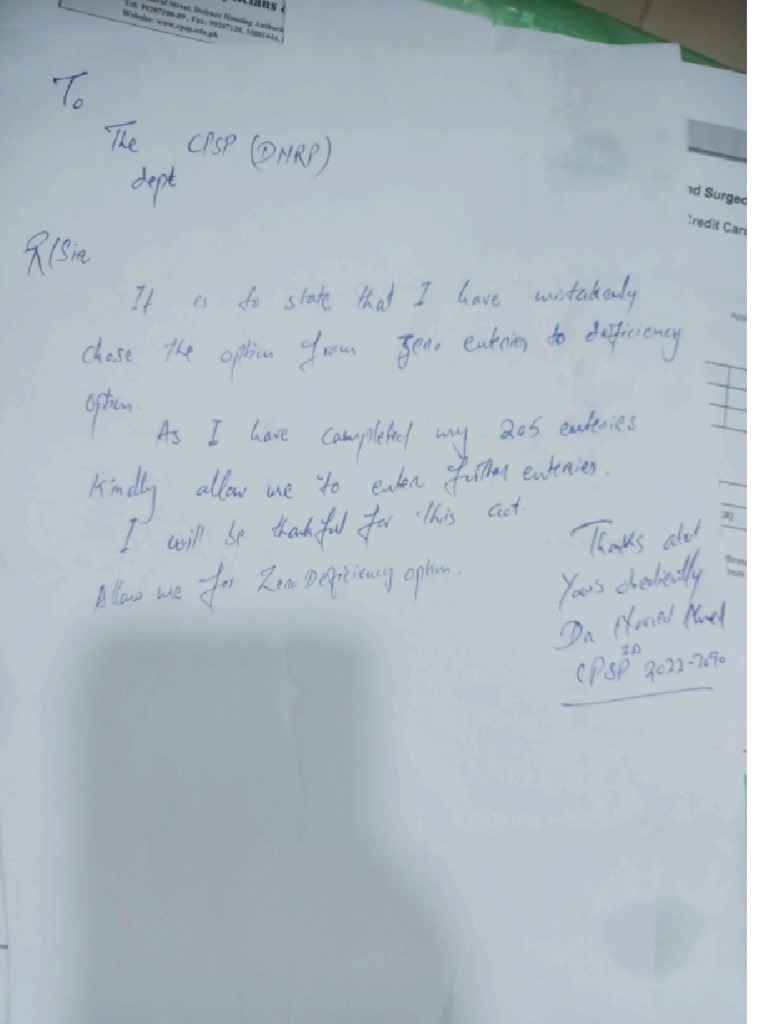 sicians
ral Street, Defence Housing Authori
Tel: 99207100-09, Fax: 99207120,
Website: www.cpsp.edu.pk
To
The CPSP (DNRP)
dept
R/Sir
nd Surgeo
Credit Card
It is to state that I have mistakenly
chose the option from Zero enteries to defficiency
option.
As I have completed my 205 enteries
Kindly allow me to enter further enteries.
I will be thankful for this act.
Allow me for Zero Deficiency option.
Thanks alot
Yours obediently
Dr Ahmed
CPSP ID 2022-2090